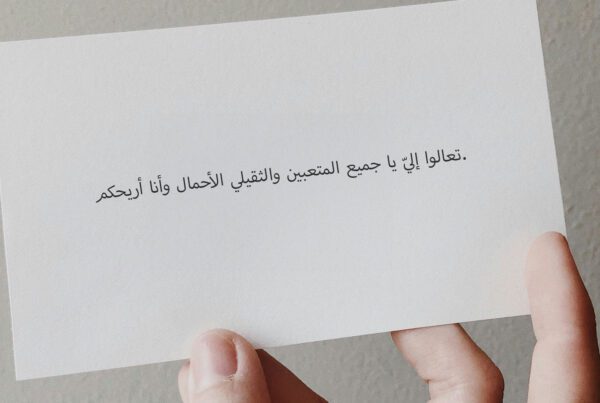 .تعالوا إليّ يا جميع المتعبين والثقيلي الأحمال وأنا أريحكم